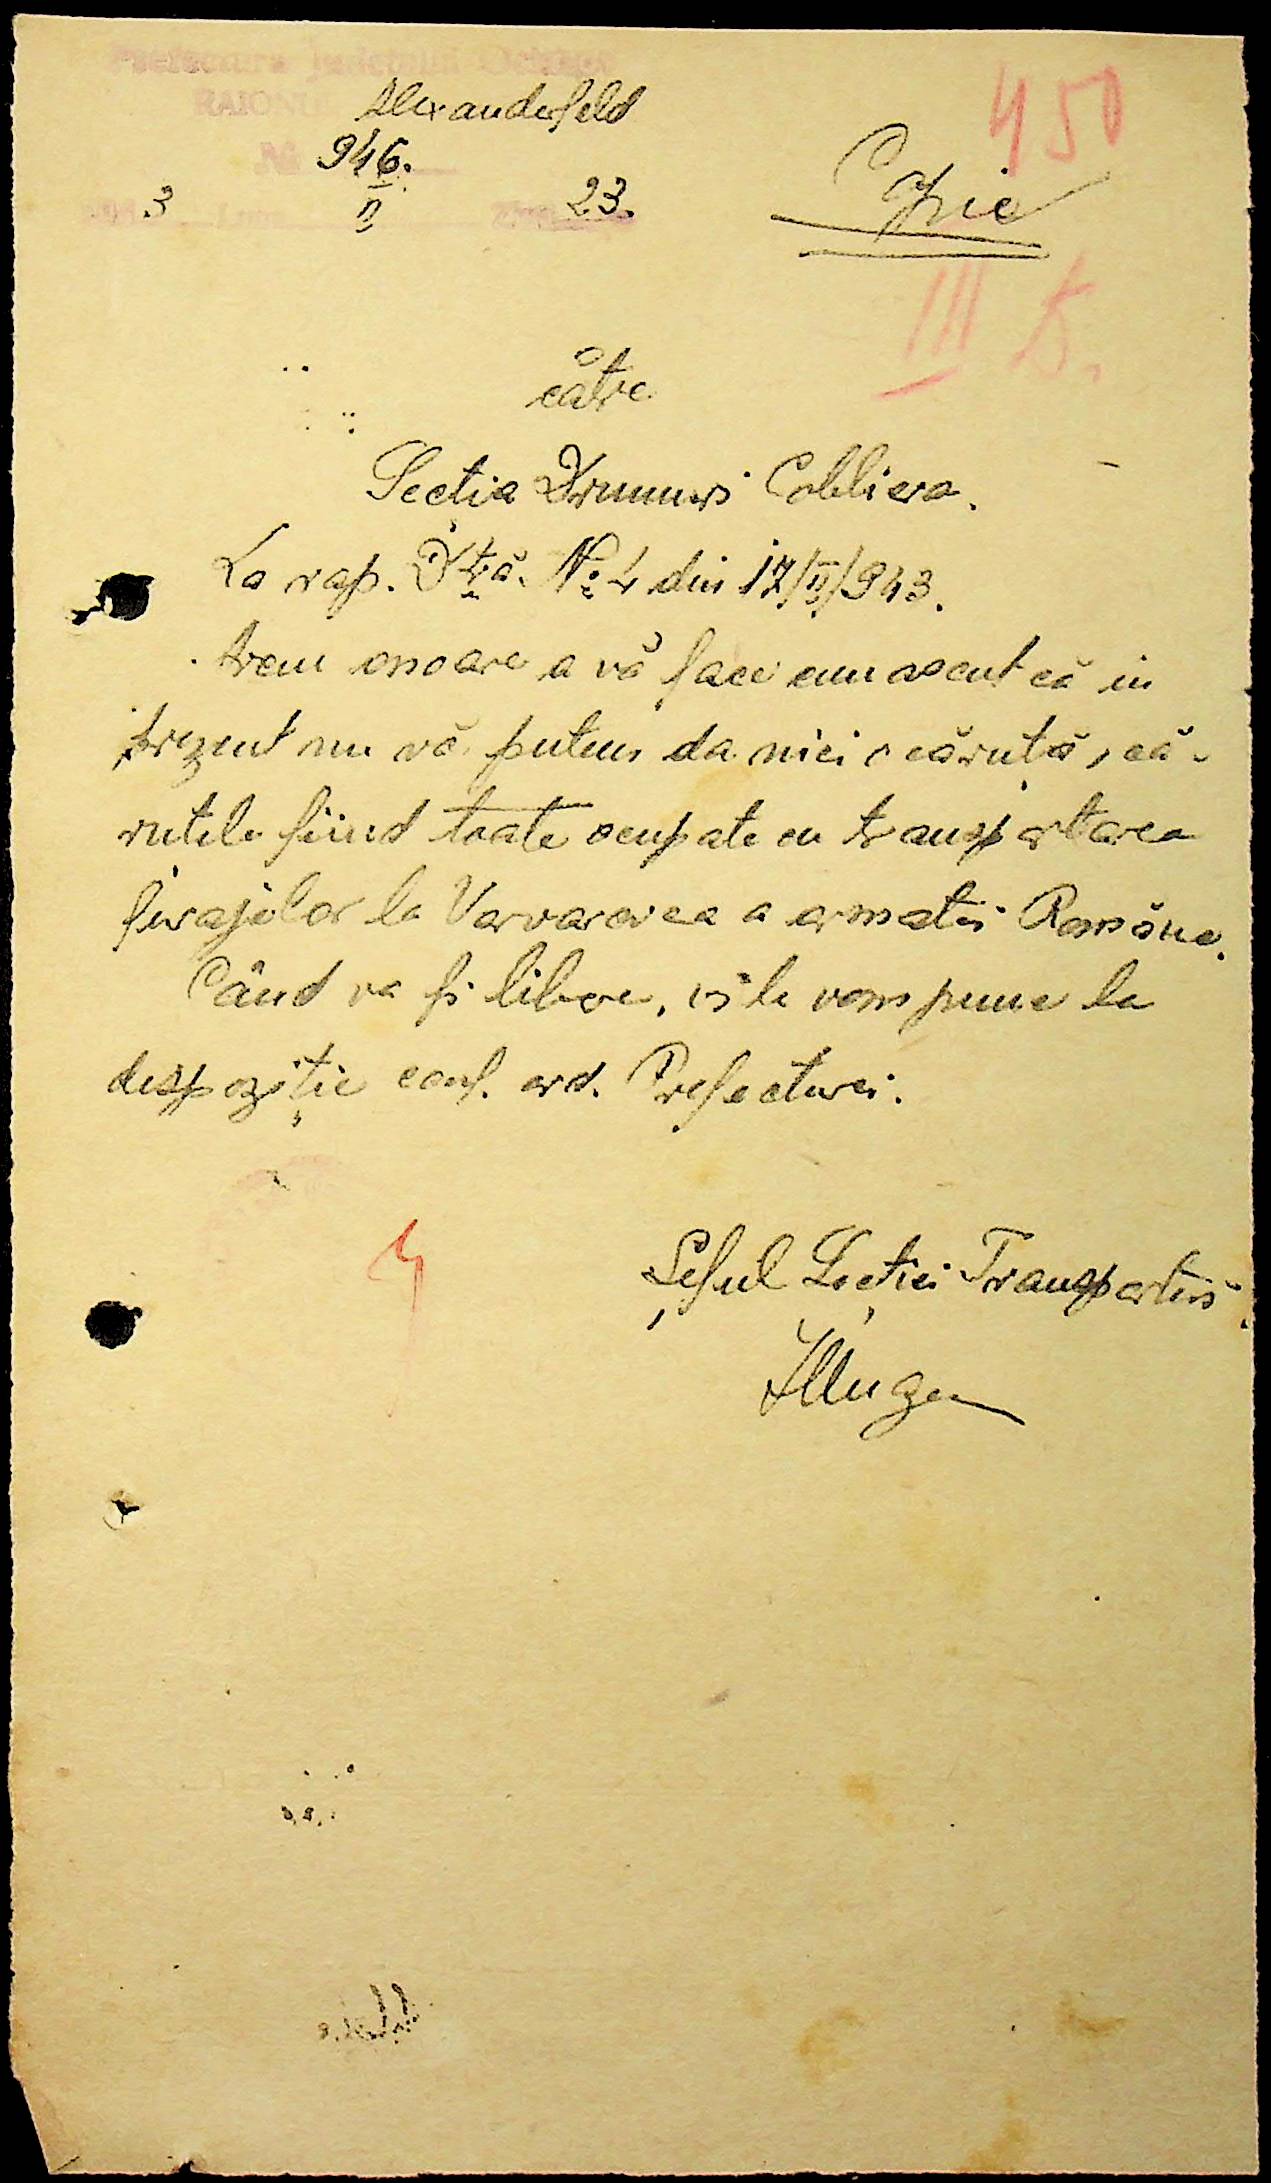 Prefectura Județului Oceacov
RAIONUL Alexanderfeld
450
№ 946.
Copie
3 Luna II Ziua 23.
III
către
Secția Drumuri Cobliera.
La rap. Dvs. № 4 din 17/II/943.
Avem onoare a vă face cunoscut că in
prezent nu vă putem da nici o căruță, că-
ruțele fiind toate ocupate cu transportarea
furajelor la Varvarovca a armatei Române.
Când va fi libere, vi le vom pune la
dispoziție conf. ord. Prefecturei.
Șeful Secției Transporturi